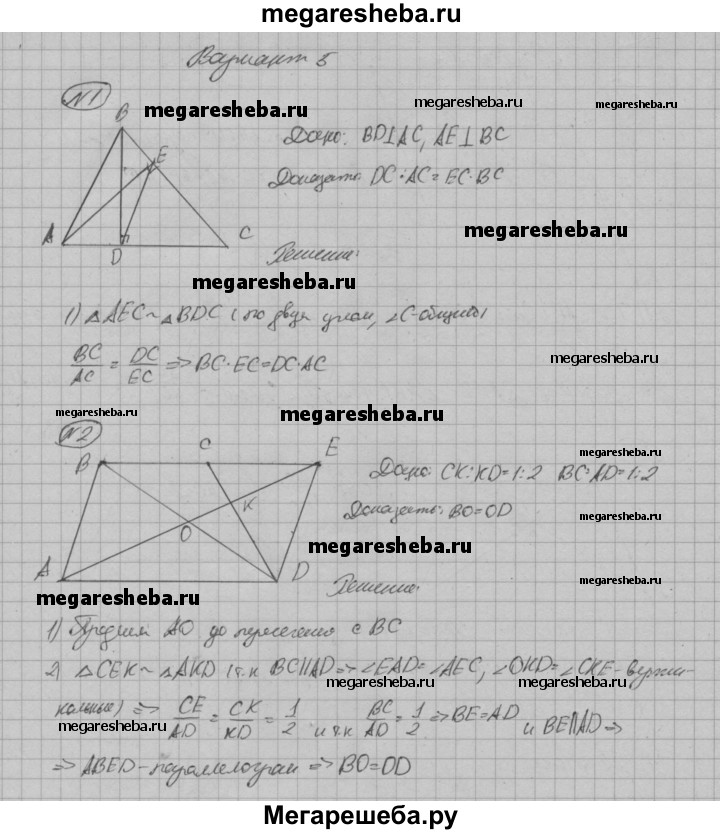 megaresheba.ru
Вариант 5
№1
megaresheba.ru
megaresheba.ru
megaresheba.ru
B
E
A
D
C
Дано: BD⊥AC, AE⊥BC
Доказать: DC·AC=EC·BC
megaresheba.ru
Решение:
megaresheba.ru
1) △AEC~△BDC (по двум углам, ∠C-общий)
BC/AC = DC/EC => BC·EC=DC·AC
megaresheba.ru
megaresheba.ru
megaresheba.ru
№2
B
C
E
K
O
A
D
Дано: CK:KD=1:2 BC:AD=1:2
megaresheba.ru
Доказать: BO=OD
megaresheba.ru
megaresheba.ru
Решение:
megaresheba.ru
megaresheba.ru
1) Продлим AO до пересечения с BC
2) △CEK~△AKD (т.к BC||AD=>∠EAD=∠AEC, ∠OKD=∠CKE-верти-
megaresheba.ru
megaresheba.ru
кальные) => CE/AD = CK/KD = 1/2 и т.к BC/AD = 1/2 => BE=AD и BE||AD=>
megaresheba.ru
megaresheba.ru
=> ABED-параллелограм => BO=OD
Мегарешеба.ру